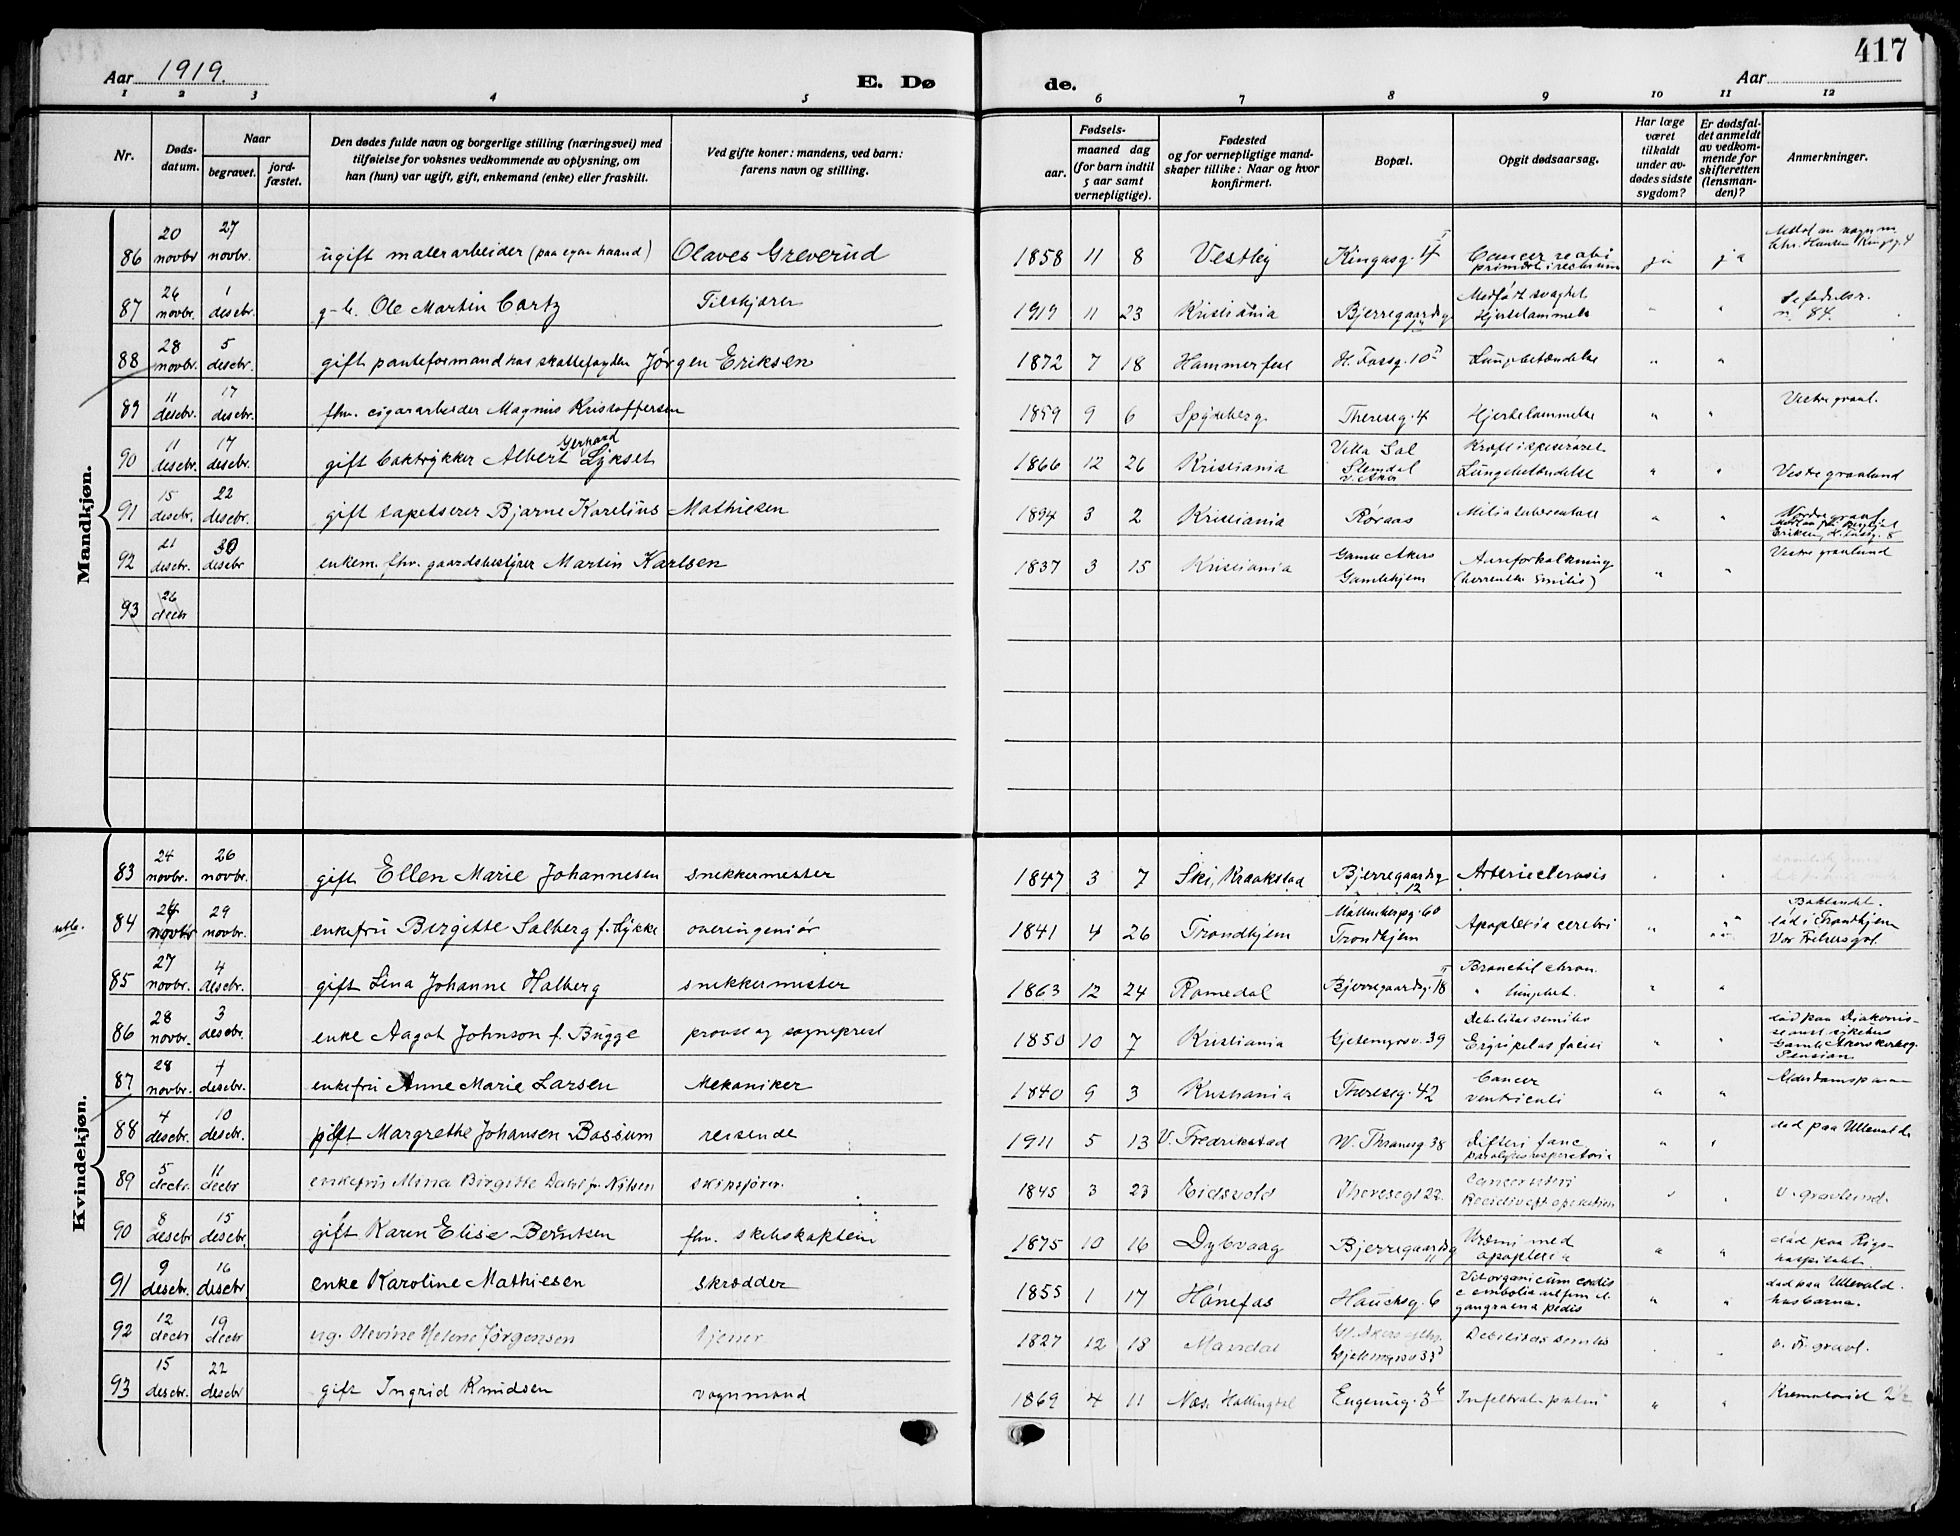 417
Aar 1919. E. Dø de. Aar
1 2 3 4 5 6 7 8 9 10 11 12
Nr. Døds-datum. Naar begravet. jord-fæstet. Den dødes fulde navn og borgerlige stilling (næringsvei) med tilføielse for voksnes vedkommende av oplysning, om han (hun) var ugift, gift, enkemand (enke) eller fraskilt. Ved gifte koner: mandens, ved barn: farens navn og stilling. Fødsels- aar. maaned dag (for barn indtil 5 aar samt vernepligtige). Fødested og for vernepligtige mand-skaper tillike: Naar og hvor konfirmert. Bopæl. Opgit dødsaarsag. Har læge været tilkaldt under av-dødes sidste sygdom? Er dødsfal-det anmeldt av vedkom-mende for skifteretten (lensman-den)? Anmerkninger.
Mandkjøn.
86 20 novbr 27 novbr. ugift malerarbeider (paa egen haand) Olaves Greverud 1858 11 8 Vestby Kingosg. 4 Cancer recti ja ja
87 26 novbr. 1 desebr. g-b. Ole Martin Cortz Tilskjærer 1919 11 23 Kristiania Bjerregaardsg Medført svaghet Hjertelammelse " " Se fødselsr. n. 84.
88 28 novbr. 5 desebr. gift panteformand hos skattefogden Jørgen Eriksen 1872 7 18 Hammerfest H. Fossg. 10 Lungebetændelse " "
89 11 desebr. 17 desebr. fhv. cigararbeider Magnus Kristoffersen 1859 9 6 Spydeberg. Theresesg. 4 Hjertelammelse " " Vestre gravl.
90 11 desebr. 17 desebr. gift boktrykker Albert Gerhard Lykset 1866 12 26 Kristiania Villa Sol Slemdal V. Aker Kræft i spiserøret Lungebetændelse " " Vestre gravlund
91 15 desebr. 22 desebr. gift tapetserer Bjarne Karelius Mathiesen 1894 3 2 Kristiania Røraas Miliatuberkulose " " Nordre gravl.
92 21 desebr. 30 desebr enkem. fhv. gaardsbestyrer Martin Karlsen 1837 3 15 Kristiania Gamle Akers Gamlehjem Aareforkalkning " " Vestre gravlund
93 26 decbr
Kvindekjøn.
83 24 novbr. 26 novbr. gift Ellen Marie Johannesen snekkermester 1847 3 7 Ski, Kraakstad Bjerregaardsg 12 Arteriesclerosis " "
84 24 novbr 29 novbr. enkefru Birgitte Solberg f. Lykke overingeniør 1841 4 26 Trondhjem Møllenbergg. 60 Trondhjem Apoplexia cerebri " " Baklandet. død i Trondhjem Vor Frelsers grl.
85 27 novbr. 4 desebr. gift Lina Johanne Holberg snekkermester 1863 12 24 Romedal Bjerregaardsg. 18 Bronchit chron. " lungebet. " "
86 28 novbr. 3 desebr. enke Aagot Johnson f. Bugge provst og sogneprest 1850 10 7 Kristiania Gjetemyrsv. 39 Debilitas senilis Erysipelas faciei " " død paa Diakonis-seanst. sykehus Pension
87 28 novbr. 4 desebr. enkefru Anne Marie Larsen Mekaniker 1840 9 3 Kristiania Theresesg. 42 Cancer ventriculi " " Alderdomspension
88 4 desebr. 10 desebr. gift Margrethe Johansen Bossum reisende 1911 5 13 V. Fredrikstad W. Thranesg 38 Difteri fauc. " " død paa Ullevold s.
89 5 decbr. 11 decbr enkefru Mina Birgitte Dahl f. Nilsen skibsfører. 1845 3 23 Eidsvold Theresesgt 22. Cancer uteri Recidiv eft operation " " V. gravlund.
90 8 desebr 15 desebr. gift Karen Elise Berntsen fhv. skibskaptein 1875 10 16 Dybvaag Bjerregaardsg 11 Uræmi med apoplexia " " død paa Rigs-hospitalet
91 9 desebr. 16 desebr enke Karoline Mathiesen skrædder 1855 1 17 Hønefos Hauchsg. 6 Vit. organicum cordis gangræna pedis " " død paa Ullevold
92 12 decbr 19 decbr ug. Olevine Helene Jørgensen tjener 1827 12 18 Mandal Debilitas senilis v. Fr. gravl.
93 15 desebr. 22 desebr gift Ingrid Knudsen vognmand 1869 4 11 Nes, Hallingdal Eugeniesg. 3 " " Krematoriet